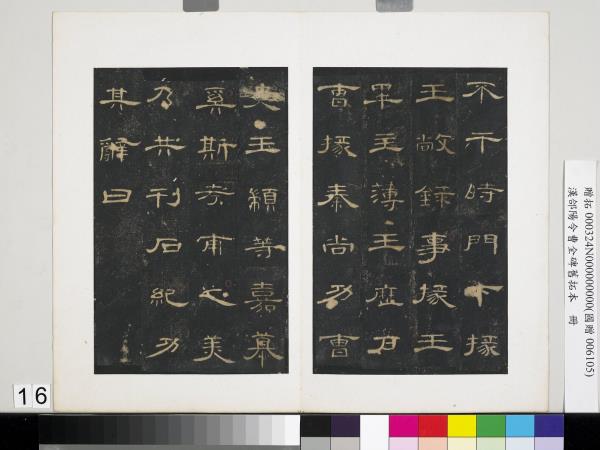 不示時門下掾
王敞錄事掾王
畢主薄王歷戶
曹掾秦尚功曹
史王顓等嘉慕
奚斯考甫之美
乃共刊石紀功
其辭曰
贈拓 000324N000000000(國贈 006105)
漢郃陽令曹全碑舊拓本 冊
16